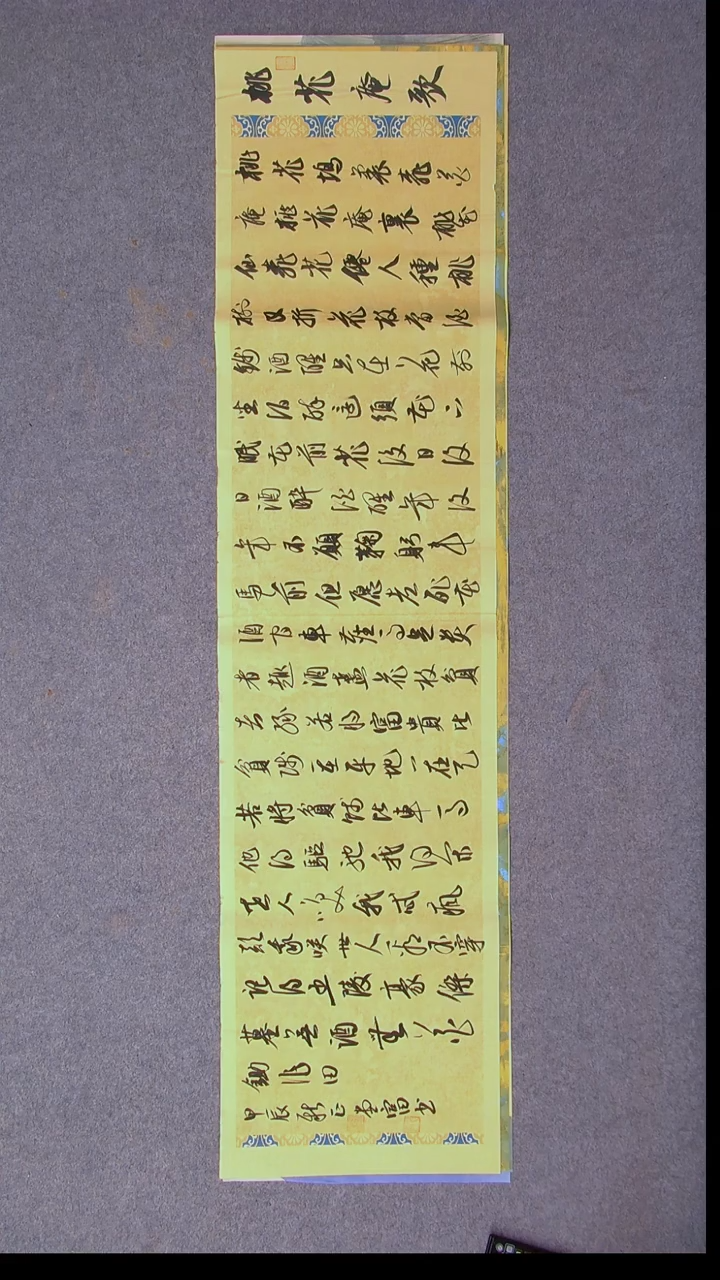 桃花庵歌
桃花塢裏桃花
庵桃花庵裏桃花
仙桃花僊人種桃
樹又折花枝當酒
錢酒醒只在花前
坐酒醉還須花下
眠花前花後日復
日酒醉酒醒年復
年不願鞠躬車
馬前但愿老死花
酒間車塵馬足貴
者趣酒盞花枝貧
者緣若將富貴比
貧賤一在平地一在天
若將貧賤比車馬
他得驅馳我得閑
世人笑我忒瘋
顛我咲世人看不穿
記得五陵豪傑
墓無酒無花
鋤作田
甲辰 富書